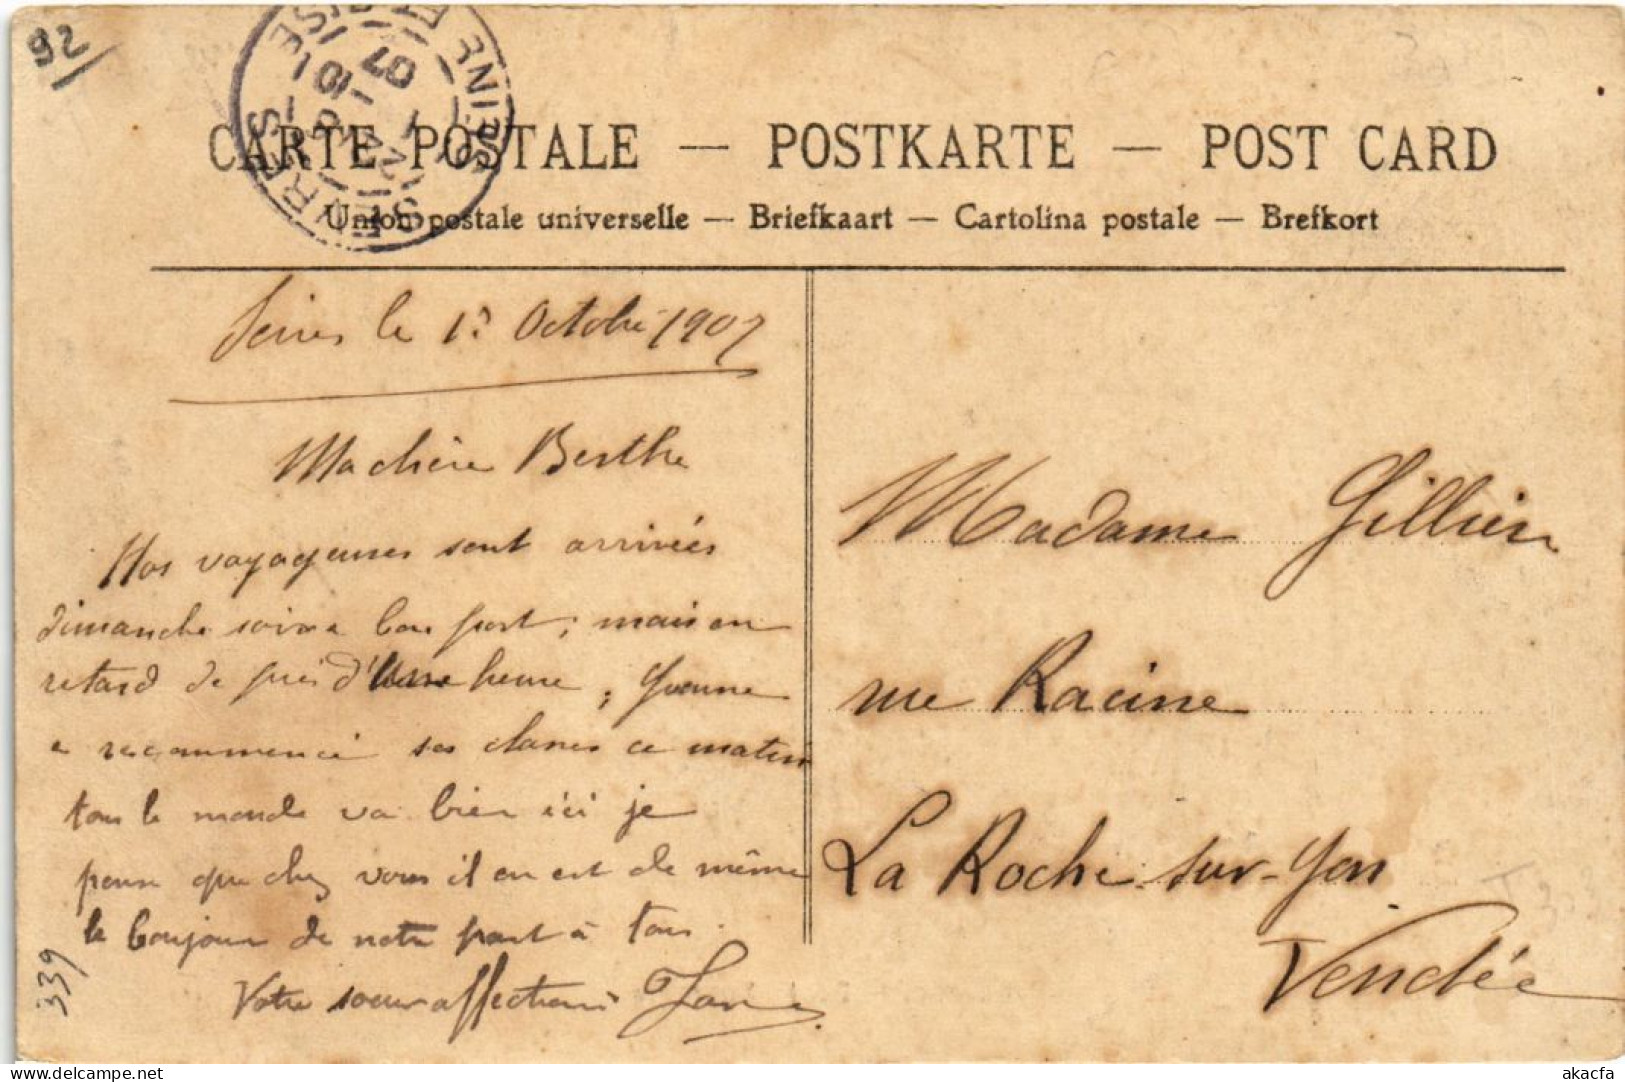 92
SEVRES SEINE ET OISE
22 10 07
CARTE POSTALE — POSTKARTE — POST CARD
Union postale universelle — Briefkaart — Cartolina postale — Brefkort
le 1 Octobre 1907
Ma chère Berthe
Nos voyageuses sont arrivées
dimanche soir à bon port; mais en
retard de près d'une heure; Yvonne
a recommencé ses classes ce matin
tous le monde va bien ici je
pense que chez vous il en est de même
le bonjour de notre part à tous.
Votre soeur affectionnée Jane
Madame Gillier
rue Racine
La Roche-sur-Yon
Vendée
339
delcampe.net
akacfa